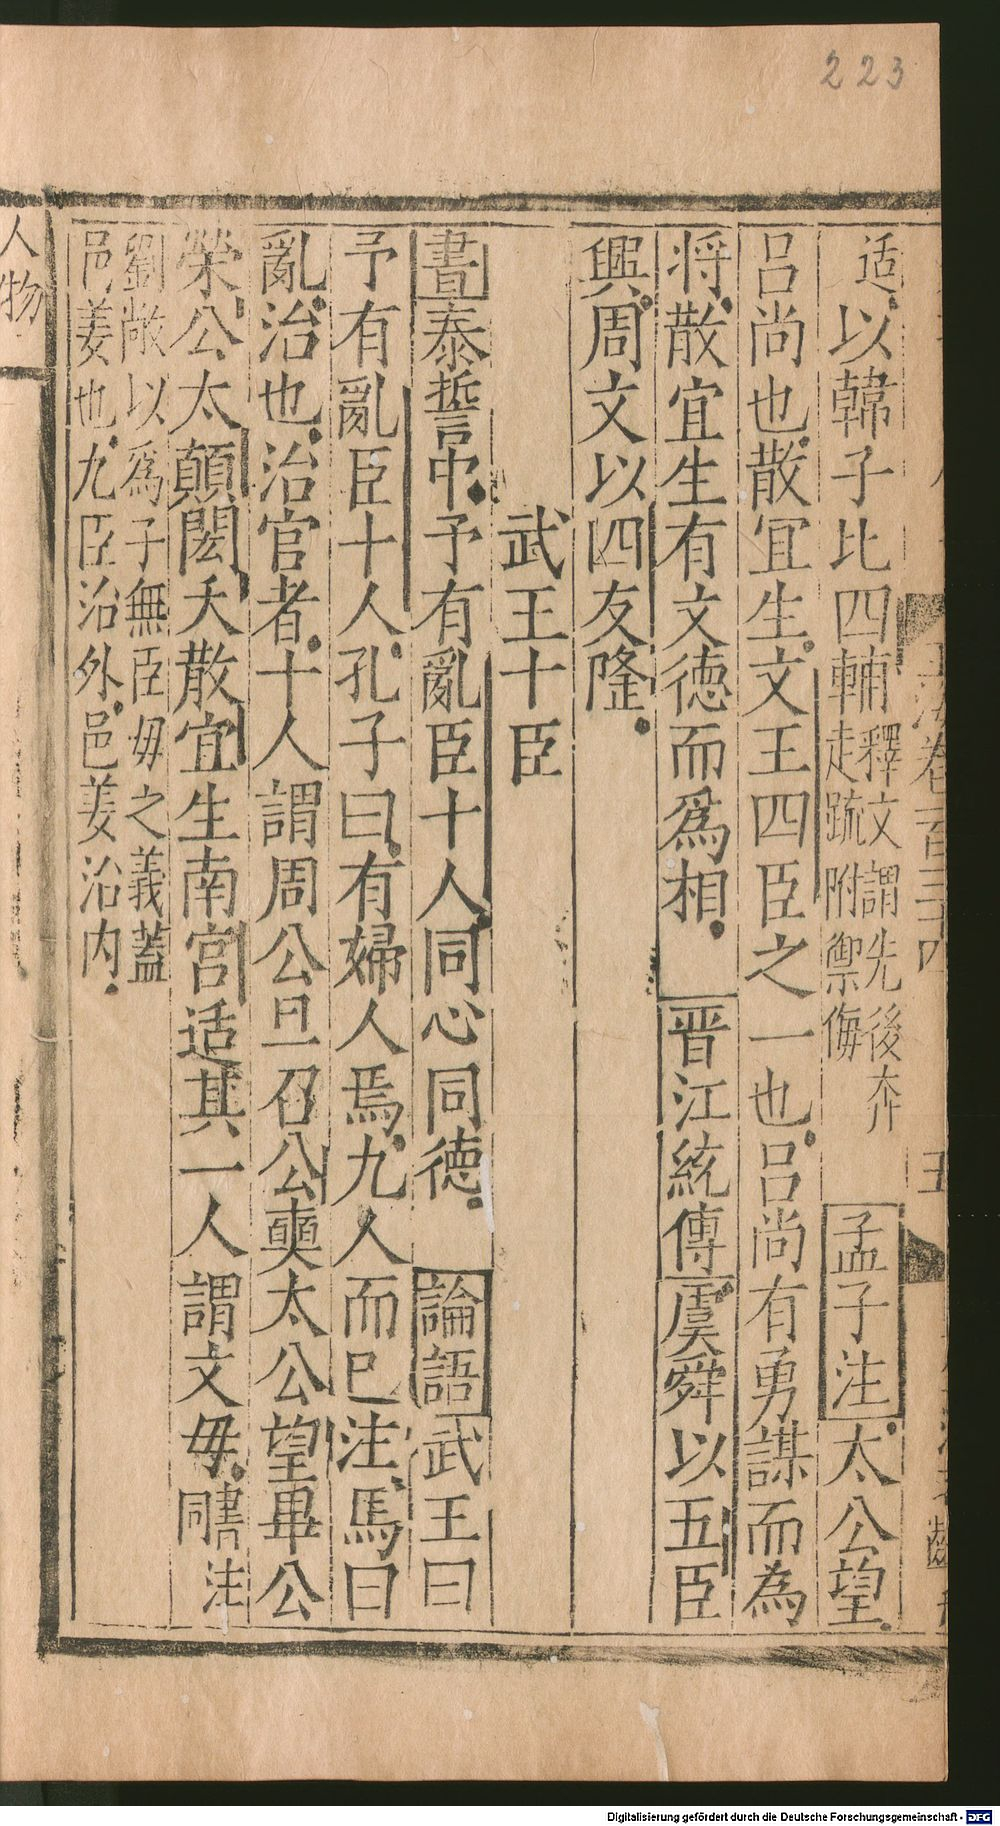 223
玉海卷一百三十四
五
适以韓子比四輔釋文謂先後奔走䟽附禦侮　孟子注太公望
呂尚也散宜生文王四臣之一也呂尚有勇謀而為
将散宜生有文徳而爲相　晋江統傳虞舜以五臣
興周文以四友隆
武王十臣
書泰誓中予有亂臣十人同心同徳　論語武王曰
予有亂臣十人孔子曰有婦人焉九人而巳注馬曰
亂治也治官者十人謂周公旦召公奭太公望畢公
榮公太顛閎夭散宜生南宮适其一人謂文母書注同
劉敞以爲子無臣母之義蓋
邑姜也九臣治外邑姜治内
人物
Digitalisierung gefördert durch die Deutsche Forschungsgemeinschaft - DFG